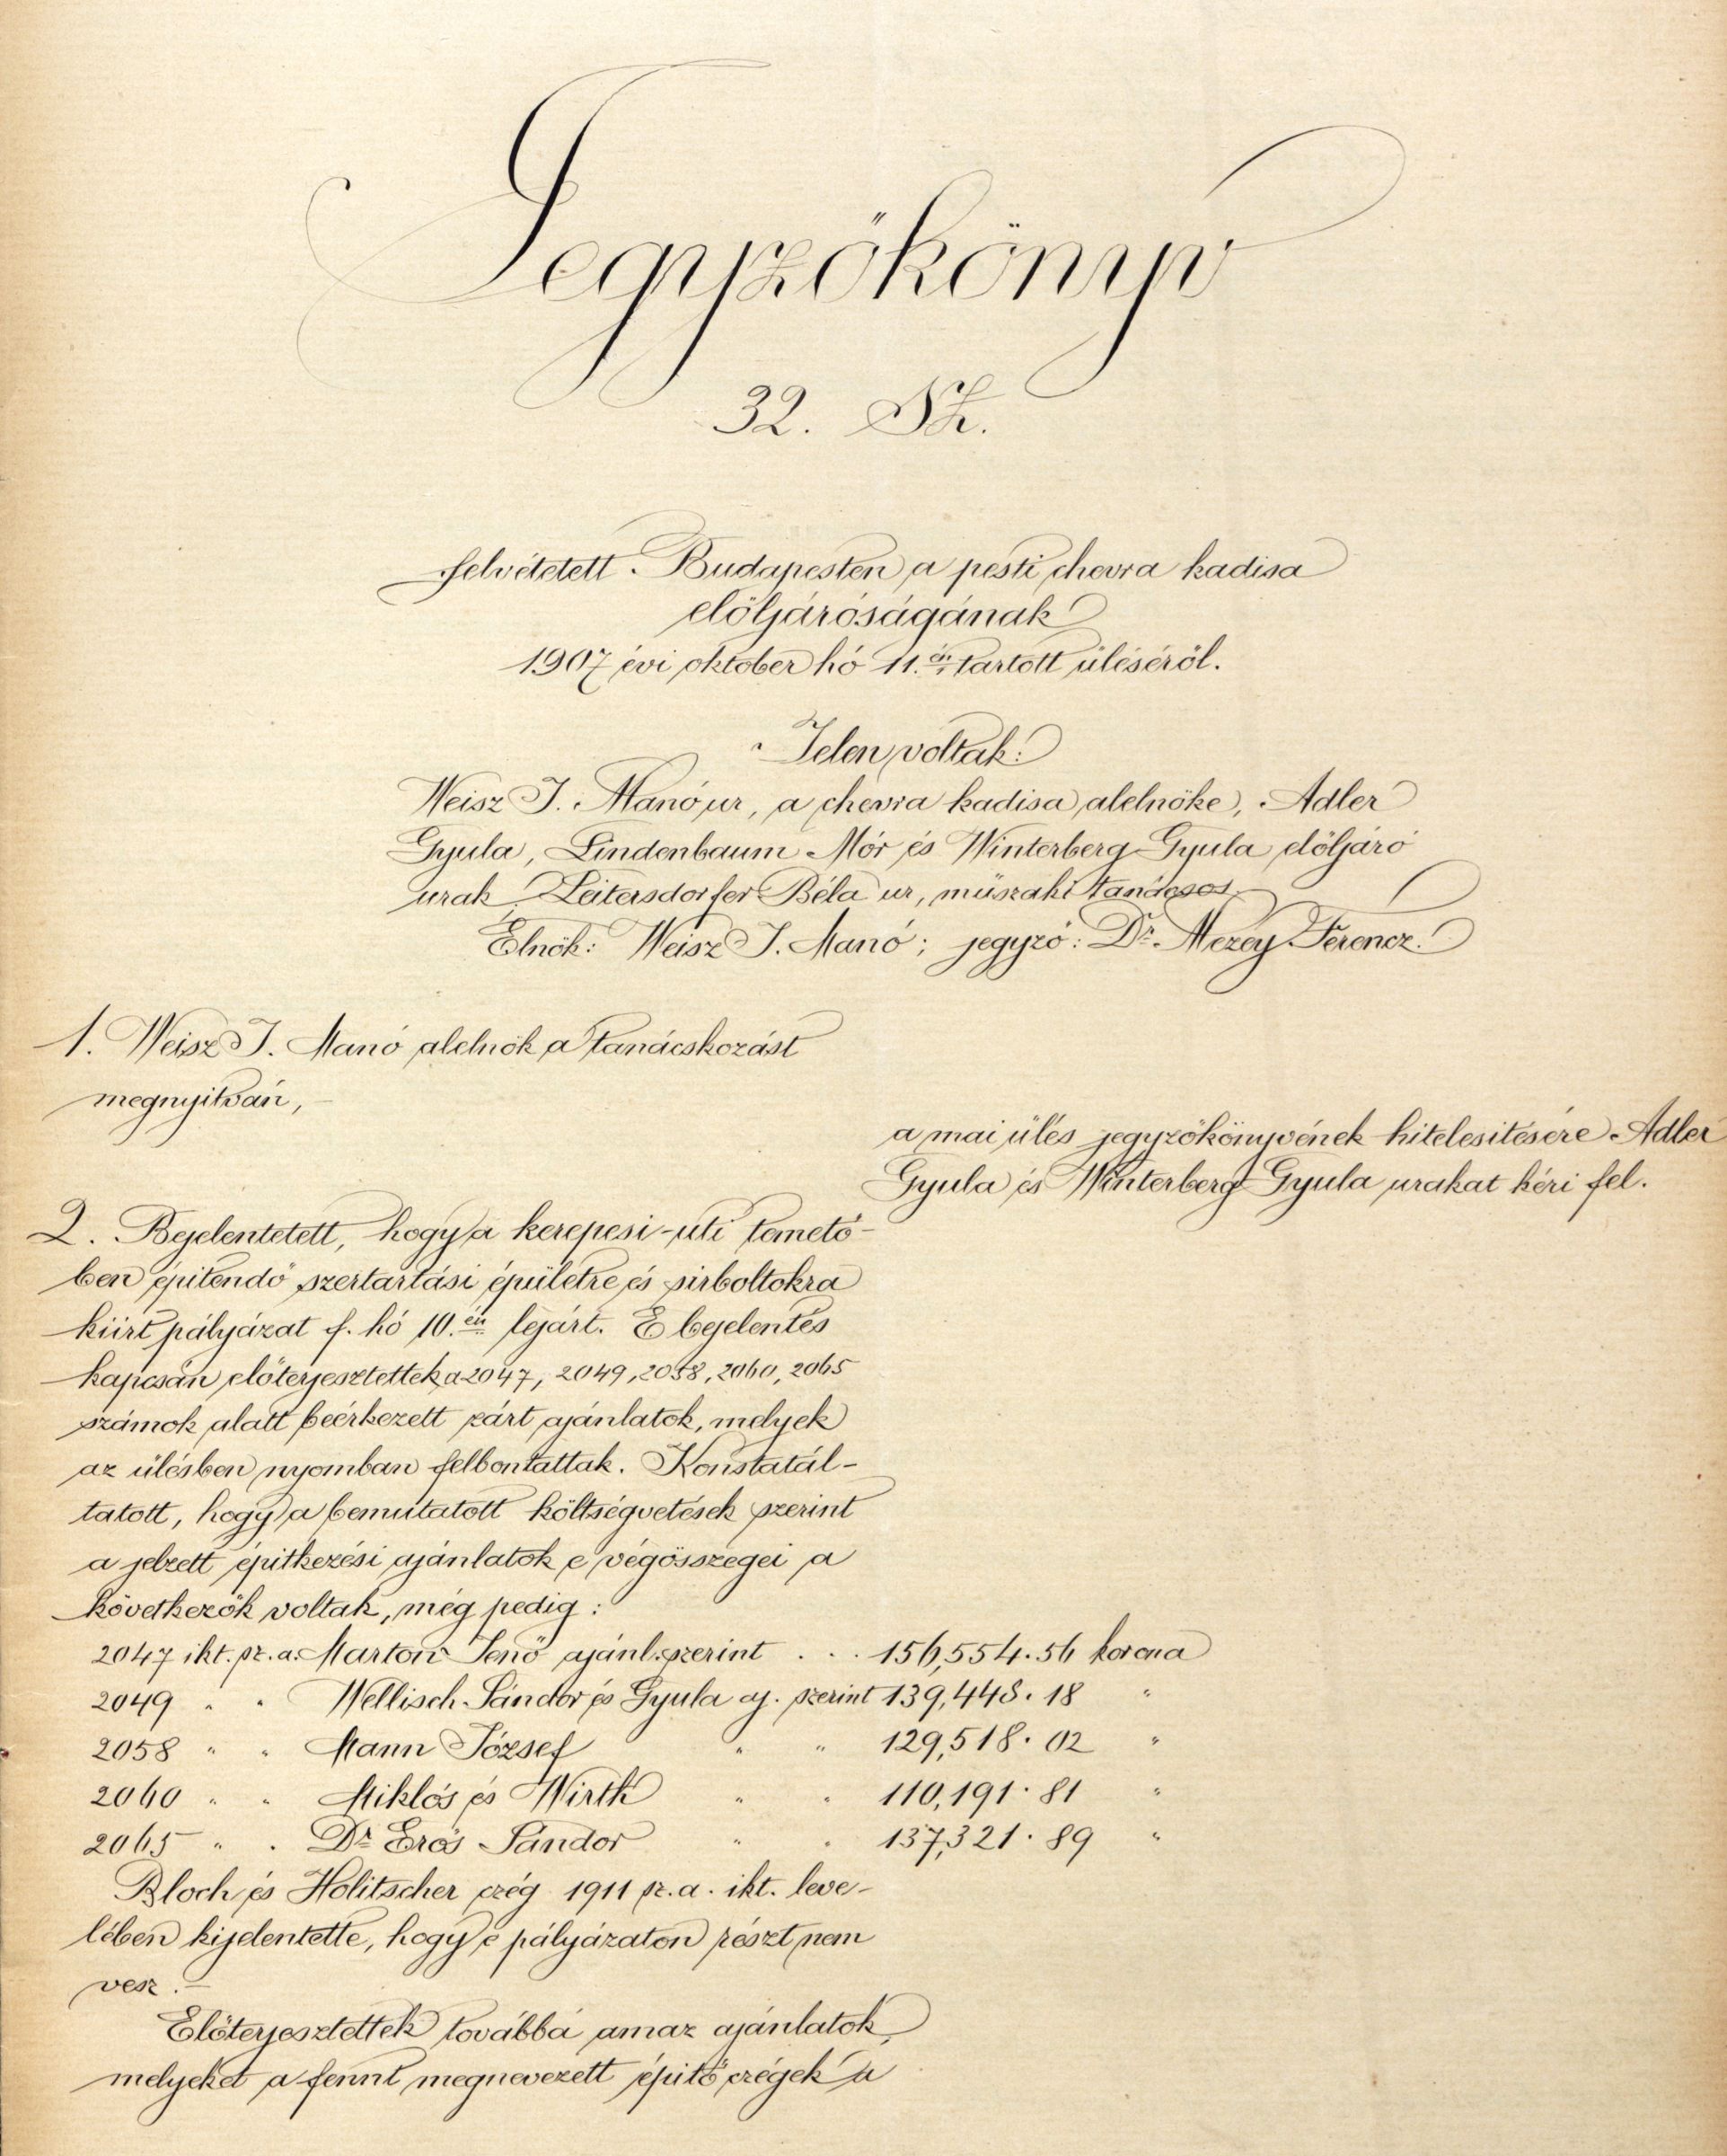 Jegyzőkönyv
32. Sz.
felvétetett Budapesten a pesti chevra kadisa
elöljáróságának
1907 évi oktober hó 11.én tartott üléséről.
Jelen voltak:
Weisz J. Manó ur, a chevra kadisa alelnöke, Adler
Gyula, Lindenbaum Mór és Winterberg Gyula elöljáró
urak, Leitersdorfer Béla ur, müszaki tanácsos.
Elnök: Weisz J. Manó; jegyző: Dr. Mezey Ferencz.
1. Weisz J. Manó alelnök a tanácskozást
megnyitván,
a mai ülés jegyzőkönyvének hitelesitésére Adler
Gyula és Winterberg Gyula urakat kéri fel.
2. Bejelentetett, hogy a kerepesi-uti temető-
ben épitendő szertartási épületre és sirboltokra
kiirt pályázat f. hó 10.én lejárt. E bejelentés
kapcsán előterjesztettek a 2047, 2049, 2058, 2060, 2065
számok alatt beérkezett zárt ajánlatok, melyek
az ülésben nyomban felbontattak. Konstatál-
tatott, hogy a bemutatott költségvetések szerint
a jelzett épitkezési ajánlatok e végösszegei a
következők voltak, még pedig:
2047 ikt. sz. a. Marton Jenő ajánl. szerint . . . 156,554.56 korona
2049 " " Wellisch Sándor és Gyula aj. szerint 139,448.18 "
2058 " " Mann József " " 129,518.02 "
2060 " " Miklós és Wirth " " 110,191.81 "
2065 " " Dr Erős Sándor " " 137,321.89 "
Bloch és Holitscher czég 1911 sz. a. ikt. leve-
lében kijelentette, hogy e pályázaton részt nem
vesz.–
Előterjesztettek továbbá amaz ajánlatok,
melyeket a fennt megnevezett épitő czégek a